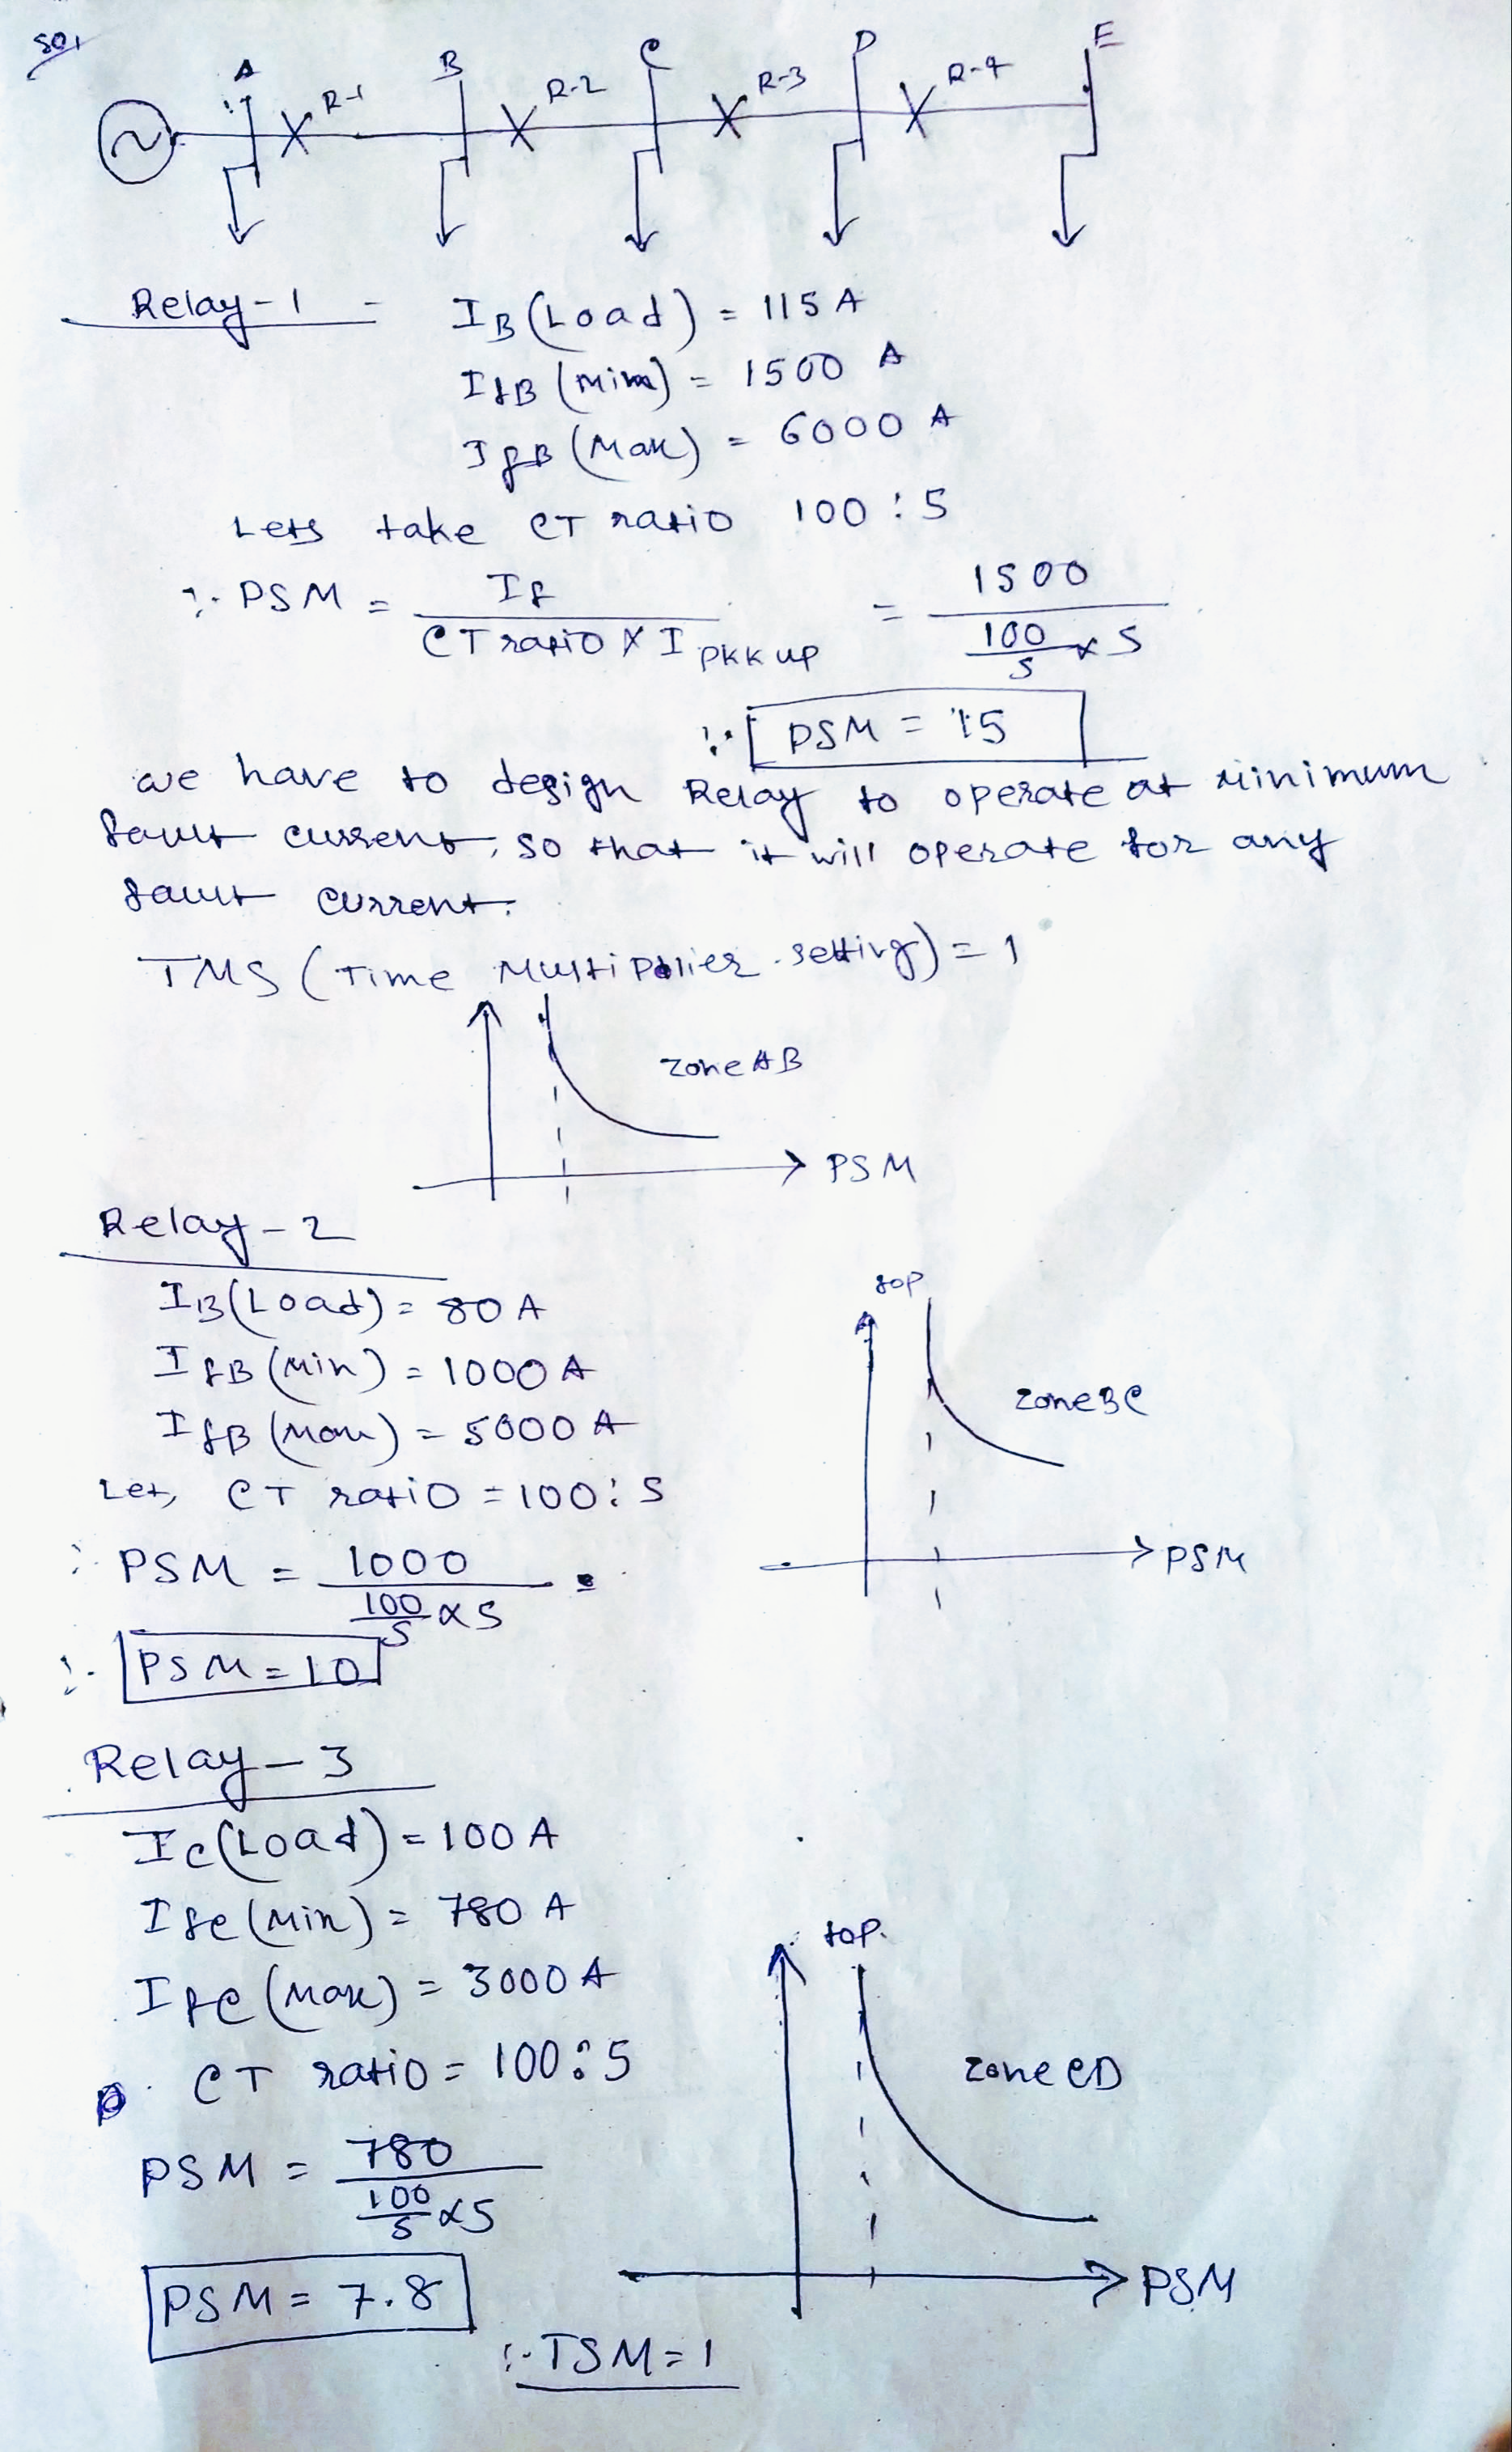 Sol
A B C D E
R-1 R-2 R-3 R-4
Relay-1 - IB (Load) = 115 A
IfB (Min) = 1500 A
IfB (Max) = 6000 A
Lets take CT ratio 100 : 5
∴ PSM = If / CT ratio X I pkk up = 1500 / 100/5 x 5
∴ PSM = 15
we have to design Relay to operate at minimum
fault current, so that it will operate for any
fault current.
TMS (Time Multiplier setting) = 1
zone AB
PSM
Relay-2
IB (Load) = 80 A
IfB (Min) = 1000 A
IfB (Max) = 5000 A
Let, CT ratio = 100 : 5
∴ PSM = 1000 / 100/5 x 5
∴ PSM = 10
top
zone BC
PSM
Relay-3
IC (Load) = 100 A
IfC (Min) = 780 A
IfC (Max) = 3000 A
CT ratio = 100 : 5
PSM = 780 / 100/5 x 5
PSM = 7.8
top.
zone CD
PSM
∴ TSM = 1